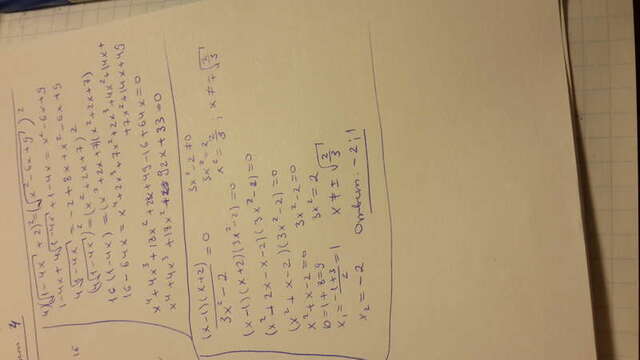 4
(√1-4x + 2)² = (√x²-6x+9)²
1-4x+4√1-4x+1-4x = x²-6x+9
4√1-4x = -2+8x+x²-6x+9
(4√1-4x)² = (x²+2x+7)²
16(1-4x) = (x²+2x+7)(x²+2x+7)
16-64x = x⁴+2x³+7x²+2x³+4x²+14x+
+7x²+14x+49
x⁴+4x³+18x²+28x+49-16+64x=0
x⁴+4x³+18x²+92x+33=0
(x-1)(x+2)/3x²-2 = 0
3x²-2≠0
3x²=2
x²=2/3; x≠±√2/3
(x-1)(x+2)(3x²-2)=0
(x²+2x-x-2)(3x²-2)=0
(x²+x-2)(3x²-2)=0
x²+x-2=0 3x²-2=0
D=1+8=9 3x²=2
x₁=-1+3/2=1 x≠±√2/3
x₂=-2 Ответ: -2;1